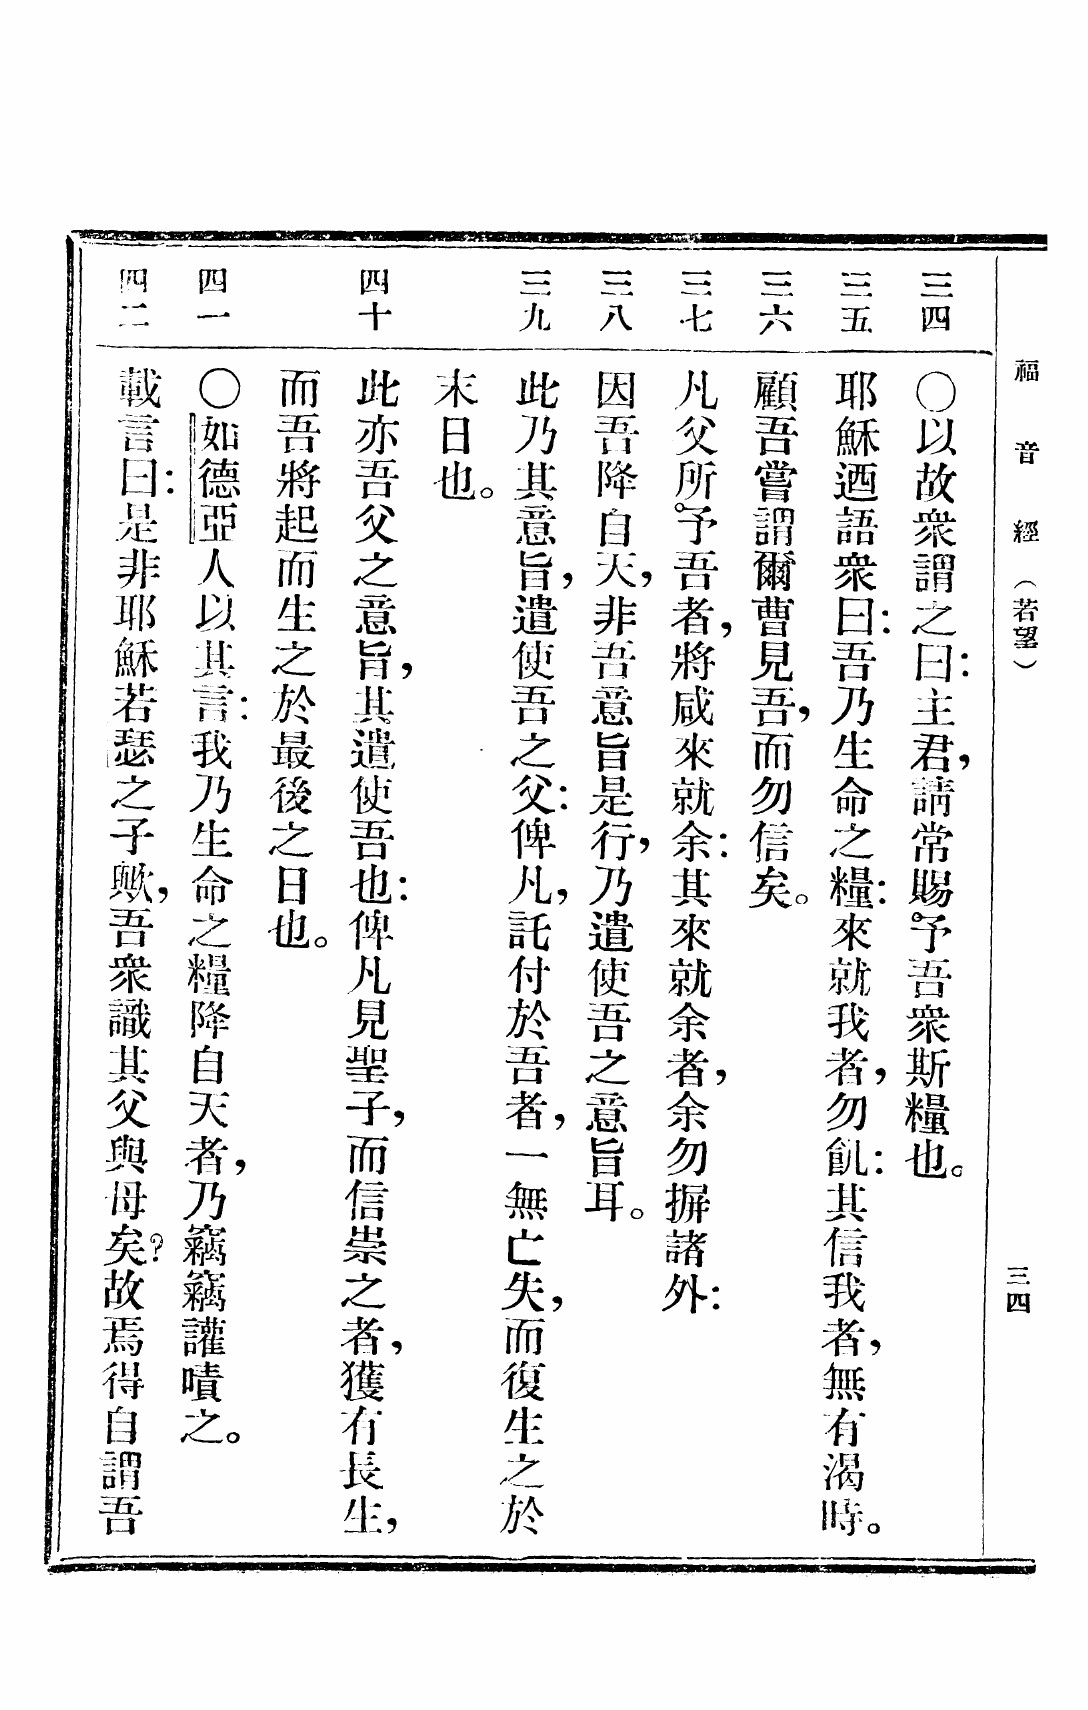 福音經（若望）
三四
三四 〇以故衆謂之曰：主君，請常賜予吾衆斯糧也。
三五 耶穌迺語衆曰：吾乃生命之糧：來就我者，勿飢：其信我者，無有渴時。
三六 顧吾嘗謂爾曹見吾，而勿信矣。
三七 凡父所予吾者，將咸來就余：其來就余者，余勿摒諸外：
三八 因吾降自天，非吾意旨是行，乃遣使吾之意旨耳。
三九 此乃其意旨，遣使吾之父：俾凡，託付於吾者，一無亡失，而復生之於
末日也。
四十 此亦吾父之意旨，其遣使吾也：俾凡見聖子，而信崇之者，獲有長生，
而吾將起而生之於最後之日也。
四一 〇如德亞人以其言：我乃生命之糧降自天者，乃竊竊讙嘖之。
四二 載言曰：是非耶穌若瑟之子歟，吾衆識其父與母矣？故焉得自謂吾